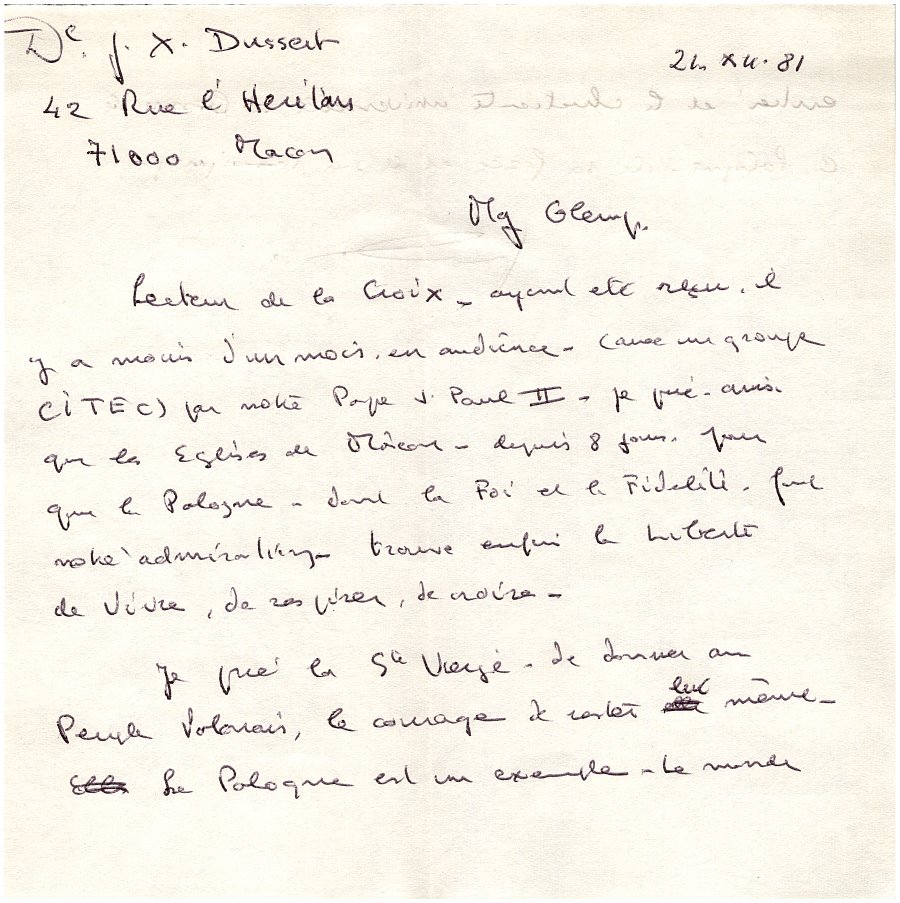 Dr. J. X. Dussert
21. XII. 81
42 Rue l' Heritan
71000 Macon
Mgr Glemp.
Lecteur de la Croix - ayant été reçu, il
y a moins d'un mois, en audience - (avec un groupe
CITEC) par notre Pape J. Paul II - je prie - ainsi
que les Eglises de Mâcon - depuis 8 jours - pour
que la Pologne - dont la Foi et la Fidélité - font
notre admiration - trouve enfin la Liberté
de Vivre, de respirer, de croire -
Je prie la Ste Vierge - de donner au
Peuple Polonais, le courage de rester lui même -
La Pologne est un exemple - Le monde